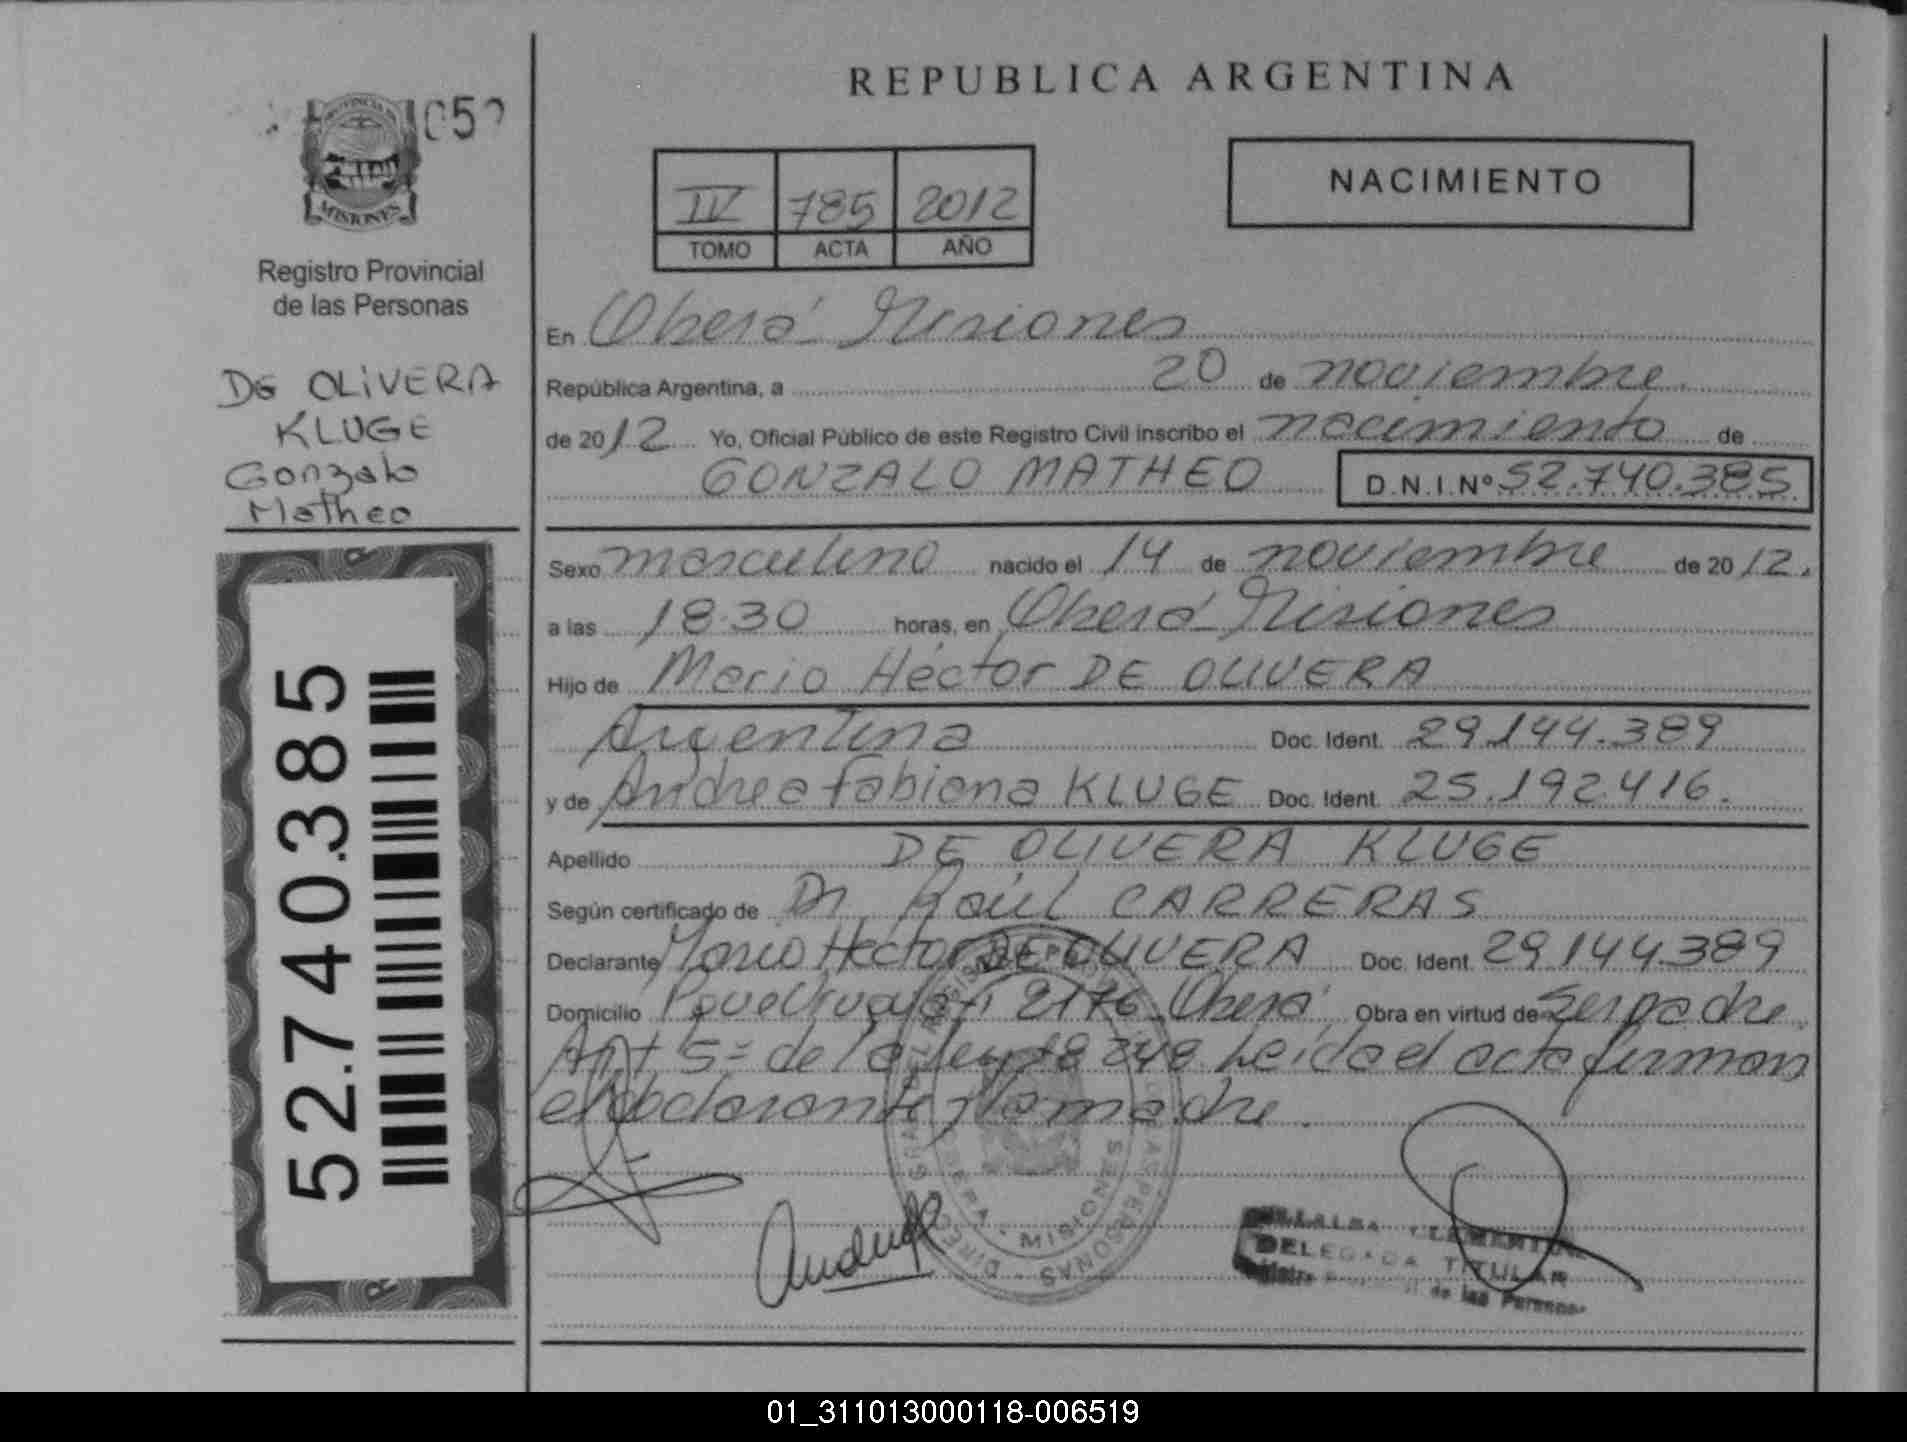 REPUBLICA ARGENTINA
PROVINCIA
MISIONES
Registro Provincial
de las Personas
DE OLIVERA
KLUGE
Gonzalo
Matheo
52.740.385
IV 785 2012
TOMO ACTA AÑO
NACIMIENTO
En Oberá Misiones
República Argentina, a 20 de noviembre
de 2012 Yo, Oficial Público de este Registro Civil inscribo el nacimiento de
GONZALO MATHEO D.N.I.Nº 52.740.385
Sexo masculino nacido el 14 de noviembre de 2012.
a las 18.30 horas, en Oberá Misiones
Hijo de Mario Héctor DE OLIVERA
Argentina Doc. Ident. 29.144.389
y de Andrea Fabiana KLUGE Doc. Ident. 25.192.416.
Apellido DE OLIVERA KLUGE
Según certificado de Dr. Raúl CARRERAS
Declarante Mario Héctor DE OLIVERA Doc. Ident. 29.144.389
Domicilio 2176 Oberá Obra en virtud de Ser padre.
Art 5º de la ley 18248. Leida el acta firman
el declarante y la madre.
MISIONES
DELEGADA TITULAR
de las Personas
01_311013000118-006519